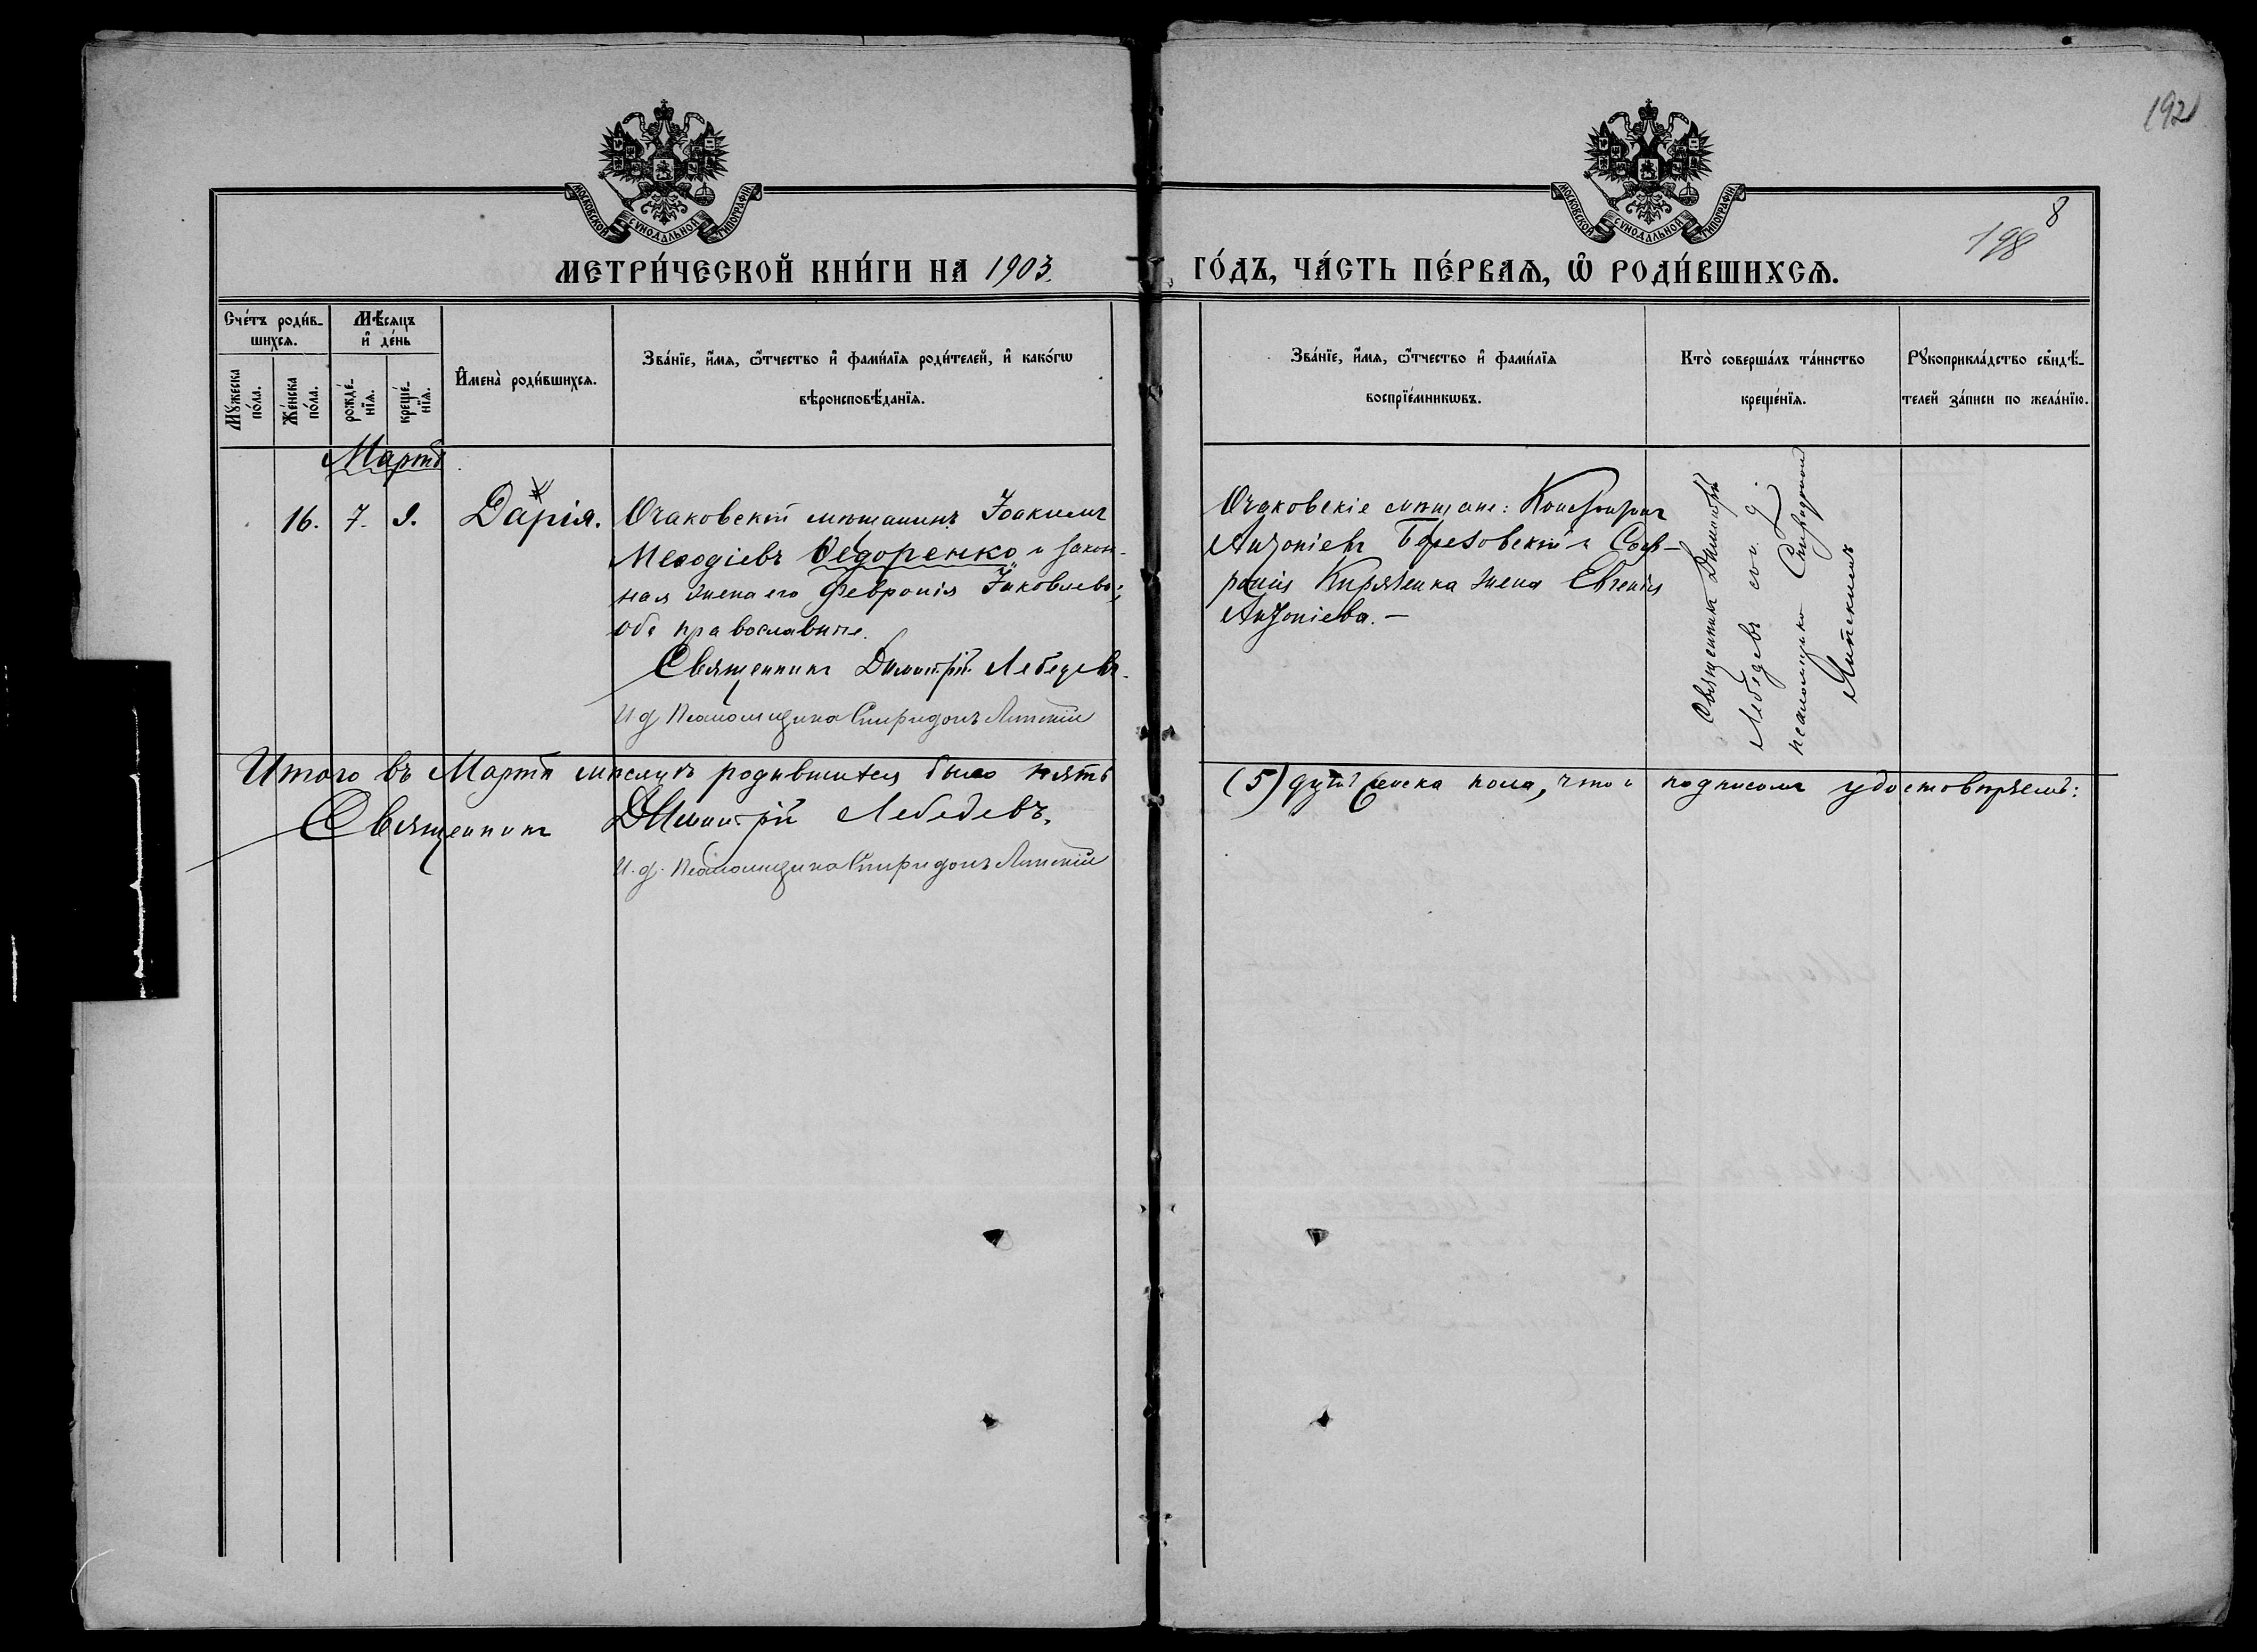 192
8
198
МОСКОВСКОЙ СѴНОДАЛЬНОЙ ТИПОГРАФІИ
МОСКОВСКОЙ СѴНОДАЛЬНОЙ ТИПОГРАФІИ
МЕТРИ́ЧЕСКОЙ КНИ́ГИ НА 1903.
ГО́ДЪ, ЧА́СТЬ ПЕ́РВАѦ, Ѽ РОДИ́ВШИХСѦ.
Сче́тъ роди́в-
шихсѧ.
Мꙋ́жеска
по́ла.
Же́нска
по́ла.
Мѣ́сѧцъ
и҆ де́нь
рожде́-
нїѧ.
креще́-
нїѧ.
И҆мена̀ роди́вшихсѧ.
Зва́нїе, и҆́мѧ, ѻ҆́тчество и҆ фами́лїѧ роди́телей, и҆ како́гѡ
вѣроисповѣ́данїѧ.
Зва́нїе, и҆́мѧ, ѻ҆́тчество и҆ фами́лїѧ
воспрїе́мникѡвъ.
Кто̀ соверша́лъ та́инство
креще́нїѧ.
Рꙋкоприкла́дство свидѣ́-
телей за́писи по жела́нїю.
Мартъ
16. 7. 9. Дарія.
Очаковскій мѣщанинъ Іоакимъ
Меѳодіевъ Ѳедоренко и закон-
ная жена его Февронія Іаковлева;
оба православные.
Священникъ Димитрій Лебедевъ.
И д Псаломщика Спиридонъ Липскій
Очаковскіе мѣщане:
Антоніевъ Березовскій и Соф-
ронія жена Евгенія
Антоніева. —
Священникъ Димитрій
Лебедевъ со и. д.
псаломщика Спиридономъ
Липскимъ
Итого въ Мартѣ мѣсяцѣ родившихся было пять
(5) душъ женска пола, что и подписомъ удостовѣряемъ:
Священникъ Димитрій Лебедевъ.
И. д. Псаломщика Спиридонъ Липскій